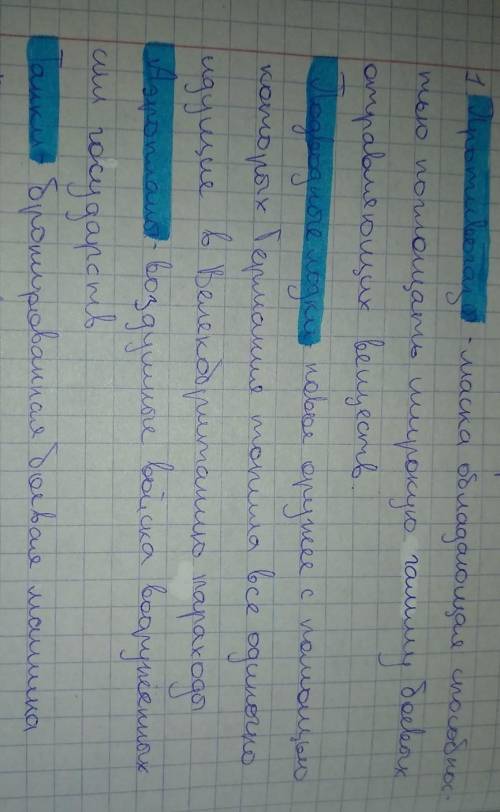 1 Противогазы - маска обладающая способнос-
тью поглощать широкую гамму боевых
отравляющих веществ.
Подводные лодки - новое оружее с помощью
которых Германия топила все одиночно
идущие в Велекобританию параходы
Аэроплан - воздушные войска вооруженных
сил государств
Танки - бронированная боевая машина